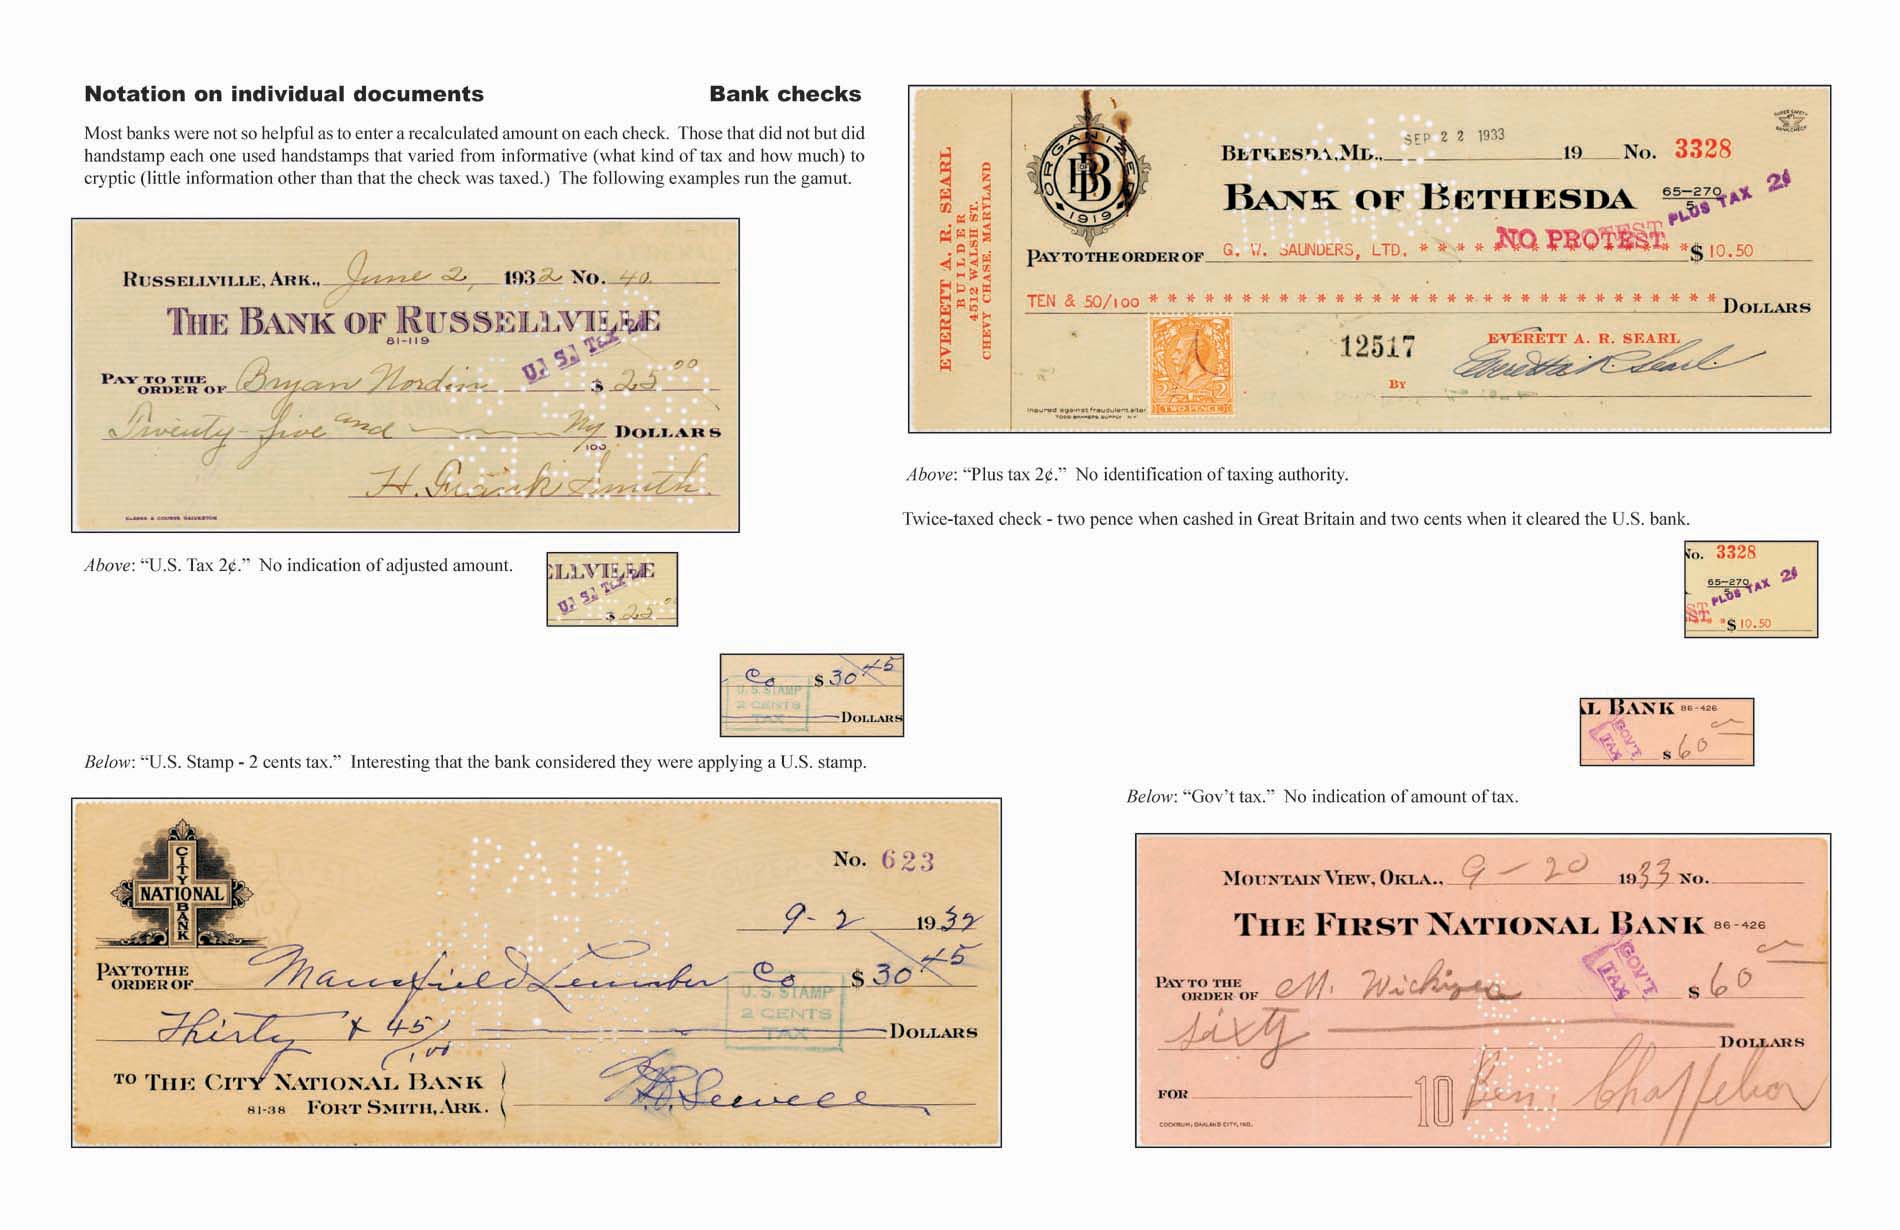 Notation on individual documents Bank checks
Most banks were not so helpful as to enter a recalculated amount on each check. Those that did not but did
handstamp each one used handstamps that varied from informative (what kind of tax and how much) to
cryptic (little information other than that the check was taxed.) The following examples run the gamut.
RUSSELLVILLE, ARK., June 2, 1932 No. 40.
THE BANK OF RUSSELLVILLE
81-119
U. S. Tax 2¢
PAY TO THE ORDER OF Bryan Nordin $ 25 00
Twenty-five and No/100 DOLLARS
H. Frank Smith.
CLARKE & COURTS GALVESTON
Above: “U.S. Tax 2¢.” No indication of adjusted amount.
ELLVILLE
U. S. Tax 2¢
$ 25 00
Co $ 30 45
U.S. STAMP
2 CENTS
TAX
DOLLARS
Below: “U.S. Stamp - 2 cents tax.” Interesting that the bank considered they were applying a U.S. stamp.
CITY NATIONAL BANK
PAID
No. 623
9-2 1932
PAY TO THE ORDER OF Mansfield Lumber Co $ 30 45
U.S. STAMP
2 CENTS
TAX
Thirty & 45/100 DOLLARS
TO THE CITY NATIONAL BANK
81-38 FORT SMITH, ARK.
EVERETT A. R. SEARL
BUILDER
4512 WALSH ST.
CHEVY CHASE, MARYLAND
ORGANIZED 1919
BB
BETHESDA, MD., SEP 22 1933 19 No. 3328
BANK OF BETHESDA 65-270/5
PLUS TAX 2¢
NO PROTEST
PAY TO THE ORDER OF G. W. SAUNDERS, LTD. * * * * * * * * $ 10.50
TEN & 50/100 * * * * * * * * * * * * * * * * * * * * * * * * * * * * * * DOLLARS
TWO PENCE
12517
EVERETT A. R. SEARL
Everett A R Searl
BY
Insured against fraudulent alter
TODD BANKERS SUPPLY N.Y.
Above: “Plus tax 2¢.” No identification of taxing authority.
Twice-taxed check - two pence when cashed in Great Britain and two cents when it cleared the U.S. bank.
No. 3328
65-270
PLUS TAX 2¢
$ 10.50
AL BANK 86-426
GOV'T
TAX
$ 60
Below: “Gov’t tax.” No indication of amount of tax.
MOUNTAIN VIEW, OKLA., 9-20 1933 No.
THE FIRST NATIONAL BANK 86-426
GOV'T
TAX
PAY TO THE ORDER OF M. $ 60
Sixty DOLLARS
FOR
10
Ben.
COCKRUM, OAKLAND CITY, IND.